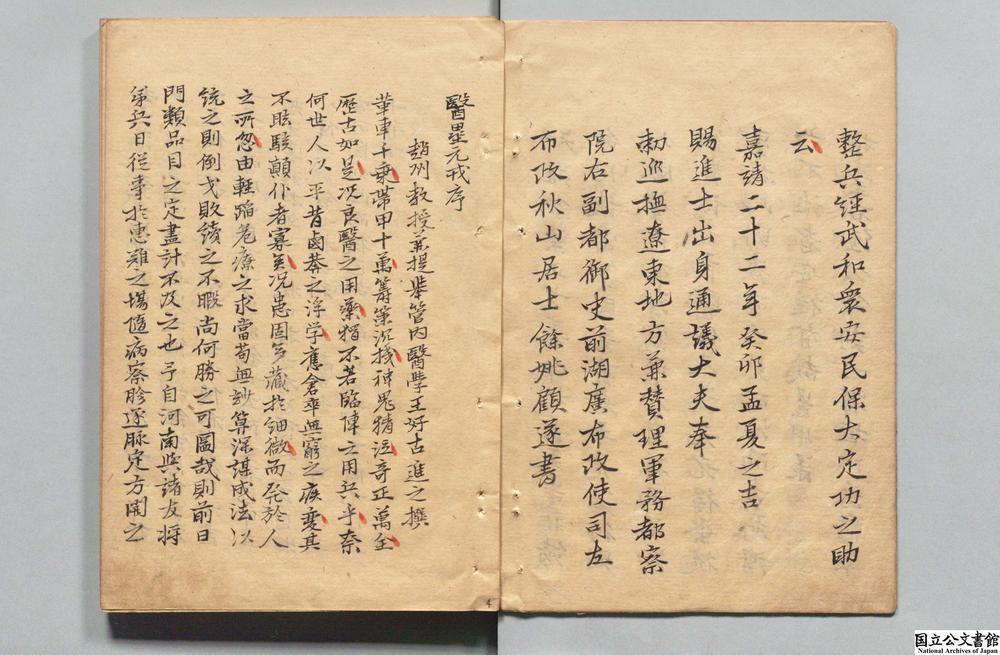 整兵經武和衆安民保大定功之助
云
嘉靖二十二年癸卯孟夏之吉
賜進士出身通議大夫奉
勑巡撫遼東地方兼贊理軍務都察
院右副都御史前湖廣布政使司左
布政秋山居士餘姚顧遂書
醫壘元戎序
趙州教授兼提舉管內醫學王好古進之撰
革車千乘帶甲十萬籌策沉機神鬼猜泣奇正萬全
歷古如是况良醫之用藥猶不若臨陣之用兵乎奈
何世人以平昔鹵莽之浮学應倉卒無窮之疾變其
不眩駭顛仆者寡矣况患固多藏扵細微而發於人
之所忽由輕蹈危療之求當苟無玅算深謀成法以
統之則倒戈敗績之不暇尚何勝之可圖哉則前日
門類品目之定盡計不及之也予自河南與諸友將
弟兵日從事扵患難之場隨病察脉逐脉定方開之
4
国立公文書館
National Archives of Japan